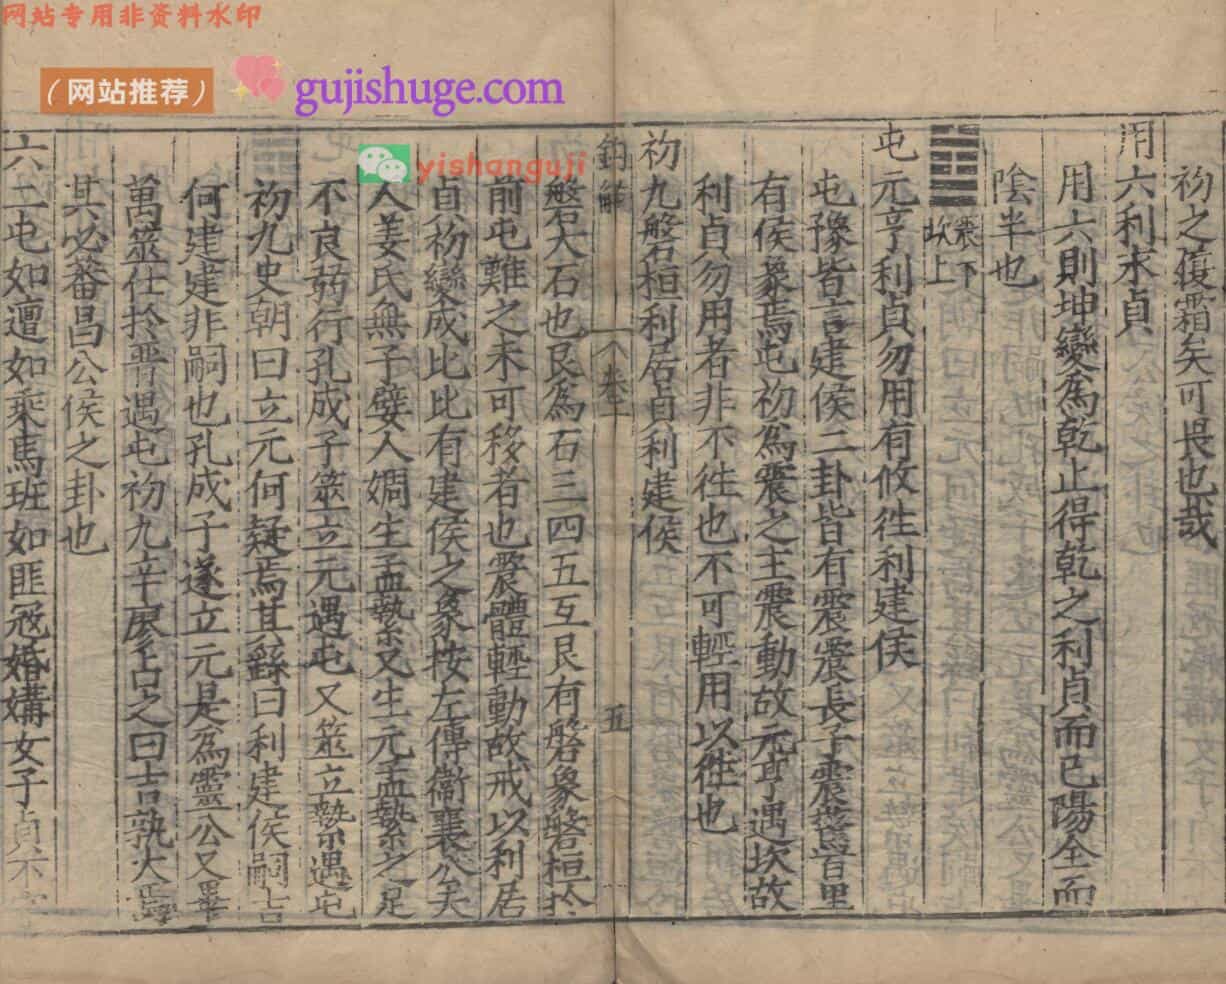 网站专用非资料水印
(网站推荐)
gujishuge.com
yishanguji
初之履霜矣可畏也哉
用六利永貞
用六則坤變為乾止得乾之利貞而已陽全而
陰半也
震下
坎上
屯元亨利貞勿用有攸往利建侯
屯豫皆言建侯二卦皆有震震長子震驚百里
有侯象焉屯初為震之主震動故元亨遇坎故
利貞勿用者非不徃也不可輕用以徃也
初九磐桓利居貞利建侯
卷一
五
磐大石也艮為石三四五互艮有磐象磐桓於
前屯難之未可移者也震體輕動故戒以利居
貞初變成比比有建侯之象按左傳衞襄公夫
人姜氏無子嬖人婤生孟縶又生元孟縶之足
不良弱行孔成子筮立元遇屯又筮立縶遇屯
初九史朝曰立元何疑焉其繇曰利建侯嗣吉
何建建非嗣也孔成子遂立元是為靈公又畢
萬筮仕於晋遇屯初九辛廖占之曰吉孰大焉
其必蕃昌公侯之卦也
六二屯如邅如乘馬班如匪寇婚媾女子貞不字